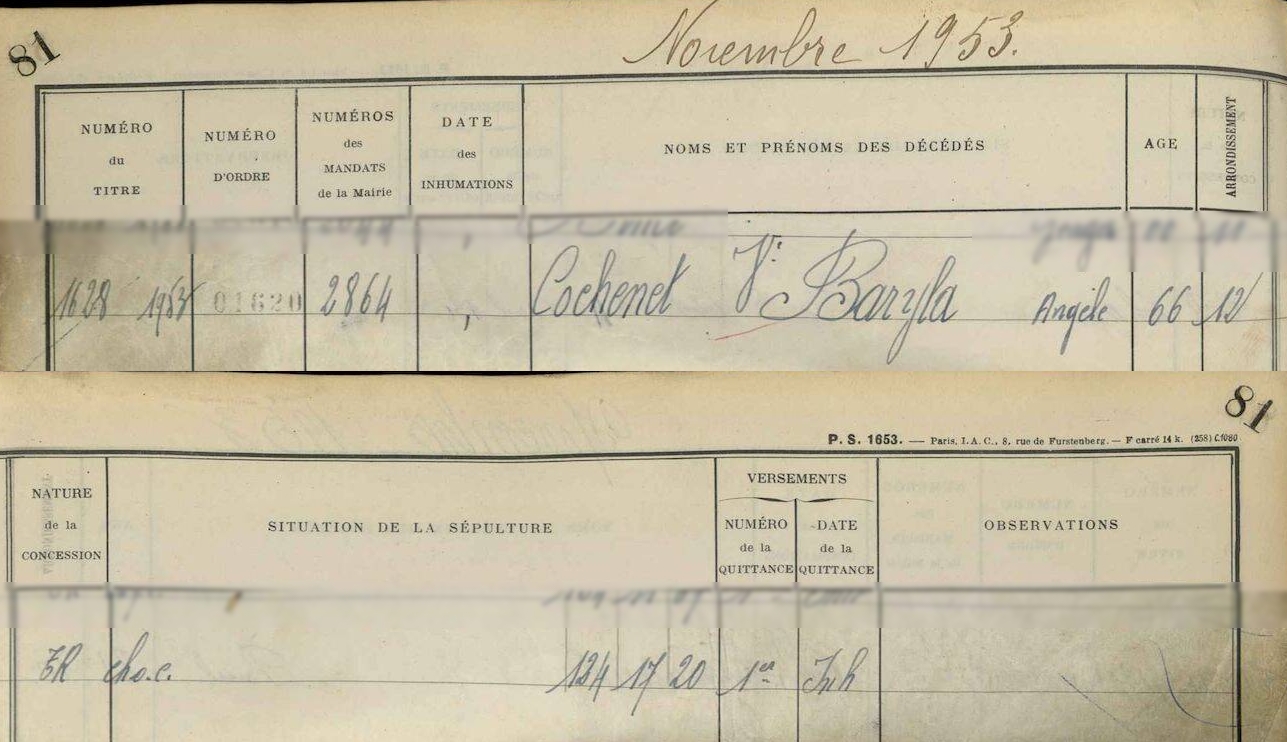 81
Novembre 1953.
NUMÉRO du TITRE
NUMÉRO D'ORDRE
NUMÉROS des MANDATS de la Mairie
DATE des INHUMATIONS
NOMS ET PRÉNOMS DES DÉCÉDÉS
AGE
ARRONDISSEMENT
1628 1953 01620 2864 , Cochenet Ve Baryla Angèle 66 12
81
P. S. 1653. — Paris, I. A. C., 8, rue de Furstenberg. — F carré 14 k. (258) C.1080
NATURE de la CONCESSION
SITUATION DE LA SÉPULTURE
VERSEMENTS
NUMÉRO de la QUITTANCE
DATE de la QUITTANCE
OBSERVATIONS
124 17 20 1er Inh